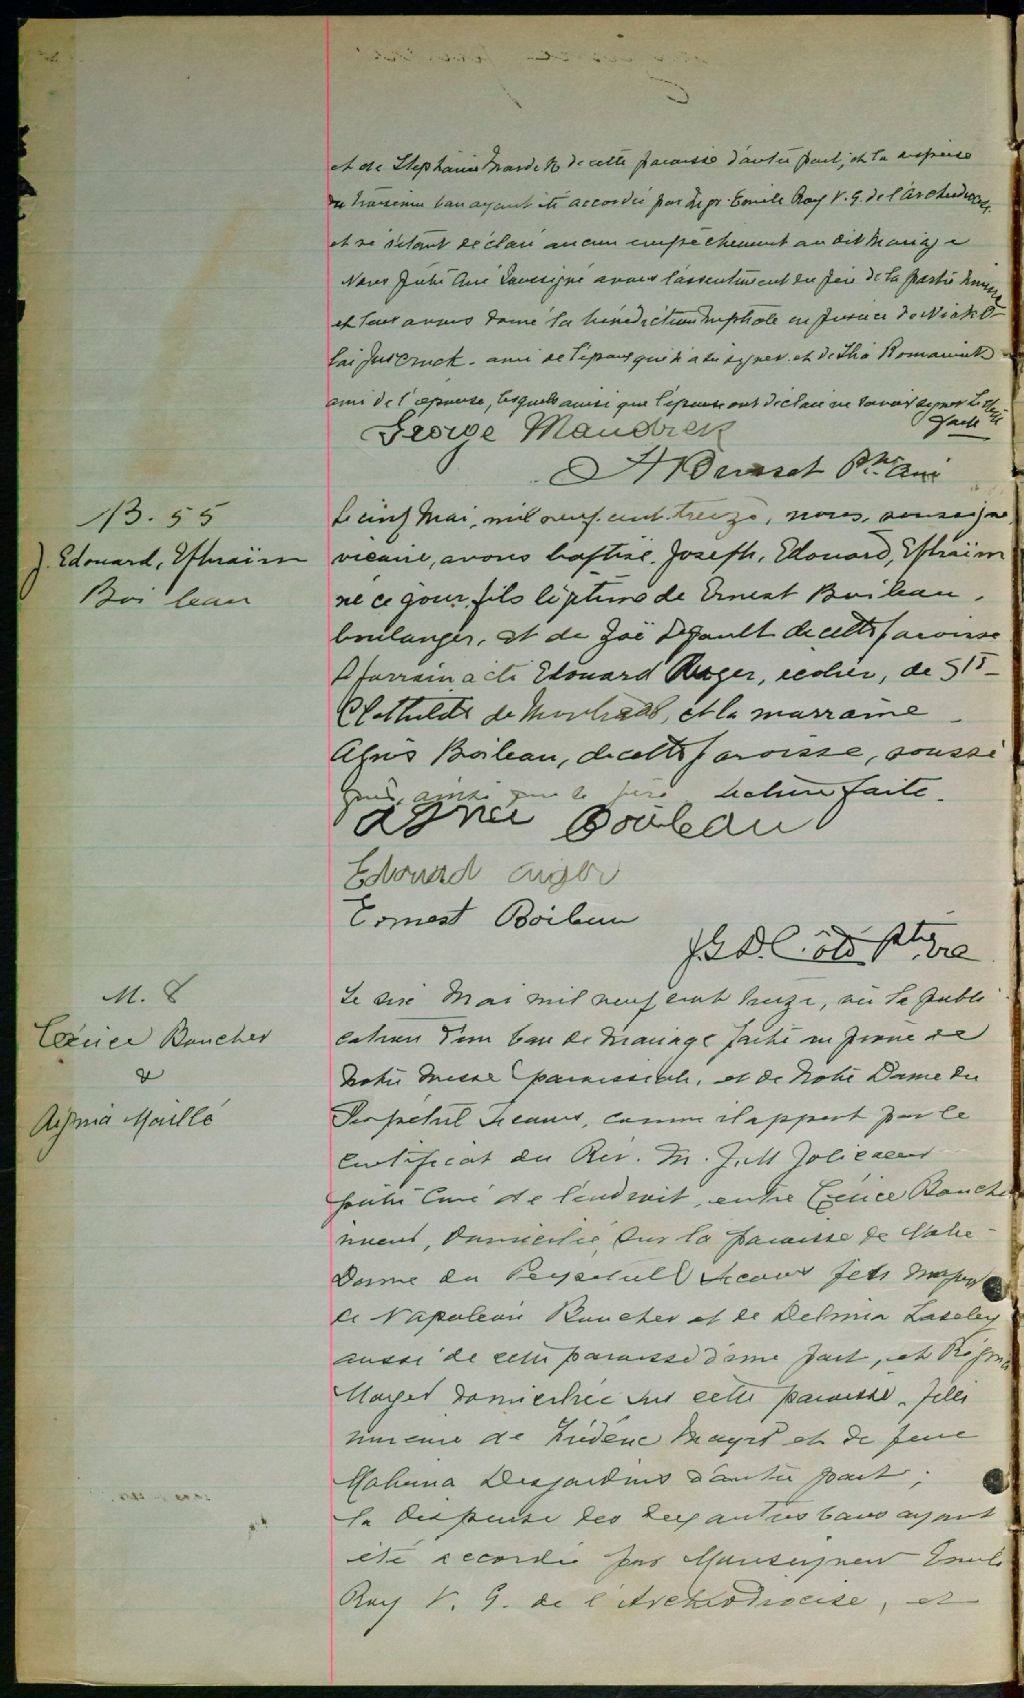 et de Stephanie de cette paroisse d'autre part; et la dispense
du troisième ban ayant été accordée par Mgr. Emile Roy V. G. de l'Archidiocèse
et ne s'étant déclaré aucun empêchement au dit mariage
Nous prêtre curé soussigné avons l'assentiment du père de la partie mineure
et leur avons donné la bénédiction nuptiale en présence de Nicko-
lai ami de l'époux qui n'a su signer et de Romaniuk
ami de l'épouse, lesquels ainsi que l'épouse ont déclaré ne savoir signer Lecture
faite
George Mandrek
Ptre Curé
B. 55
J. Edouard, Ephraïm
Boileau
Le cinq Mai, mil neuf cent treize, nous, soussigné
vicaire, avons baptisé, Joseph, Edouard, Ephraïm
né ce jour, fils légitime de Ernest Boileau,
boulanger, et de Zoë Legault de cette paroisse
Le parrain a été Edouard Auger, écolier, de Ste-
Clothilde de Montréal, et la marraine
Agnès Boileau, de cette paroisse, soussi
gnés, ainsi que le père. Lecture faite.
Agnès Boileau
Edouard Auger
Ernest Boileau
J.G.D. Côté Ptre, vic
M. 8
Boucher
&
Régina Maillé
Le six Mai mil neuf cent treize, vu la publi
cation d'un ban de mariage faite au prône de
notre messe paroissiale, et de Notre Dame du
Perpétuel Secours, comme il appert par le
certificat du Rév. M. J. M Jolicoeur
prêtre curé de l'endroit, entre Boucher
mineur, domicilié sur la paroisse de Notre-
Dame du Perpétuel Secours fils majeur
de Napoléon Boucher et de Delmia
aussi de cette paroisse d'une part, et Régina
domiciliée sur cette paroisse, fille
mineure de Frédéric et de feue
Desjardins d'autre part;
la dispense des deux autres bans ayant
été accordée par Monseigneur Emile
Roy V. G. de l'Archidiocèse, et